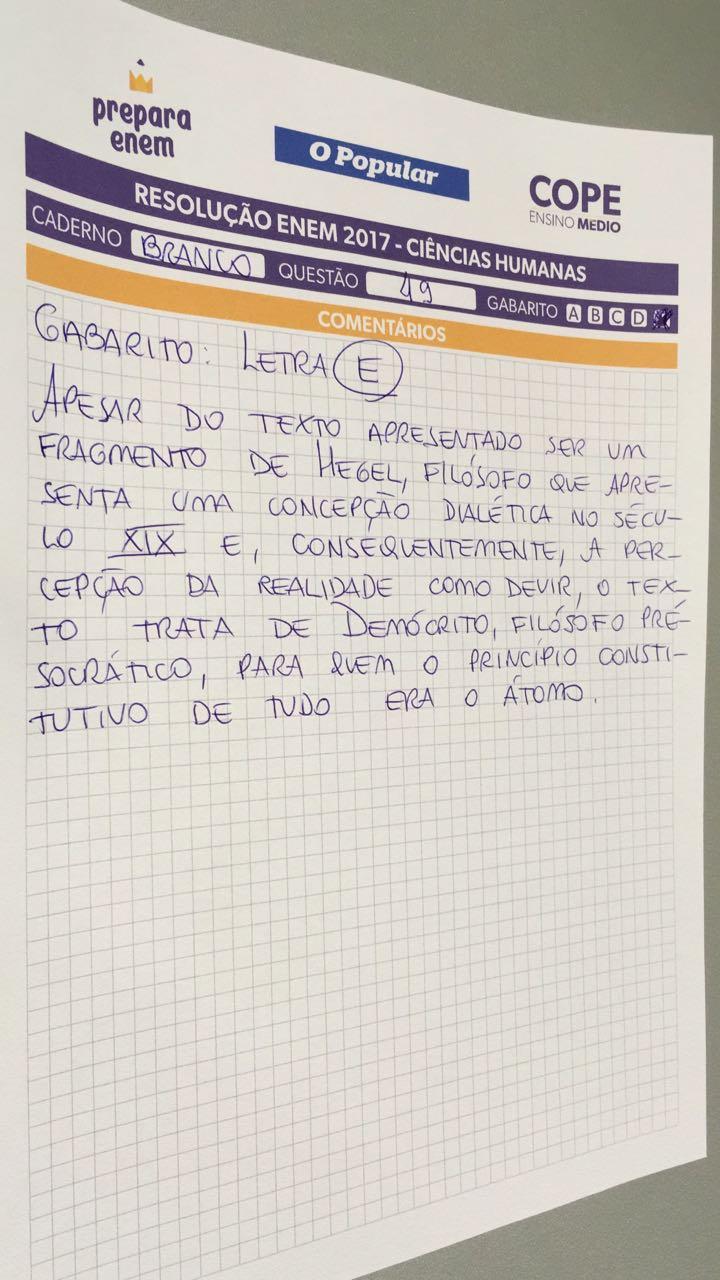 prepara
enem
O Popular
COPE
ENSINO MEDIO
RESOLUÇÃO ENEM 2017 - CIÊNCIAS HUMANAS
CADERNO BRANCO QUESTÃO 49 GABARITO A B C D
COMENTÁRIOS
GABARITO: LETRA E
APESAR DO TEXTO APRESENTADO SER UM
FRAGMENTO DE HEGEL, FILÓSOFO QUE APRE-
SENTA UMA CONCEPÇÃO DIALÉTICA NO SÉCU-
LO XIX E, CONSEQUENTEMENTE, A PER-
CEPÇÃO DA REALIDADE COMO DEVIR, O TEX-
TO TRATA DE DEMÓCRITO, FILÓSOFO PRÉ-
SOCRÁTICO, PARA QUEM O PRINCÍPIO CONSTI-
TUTIVO DE TUDO ERA O ÁTOMO.